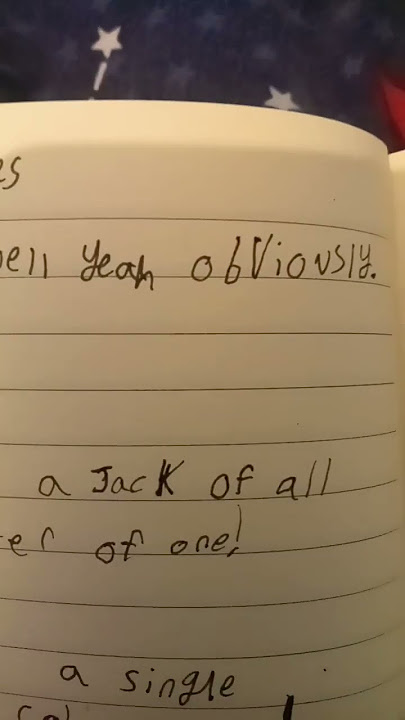 es
ell yeah obviously.
a Jack of all
er of one!
a single